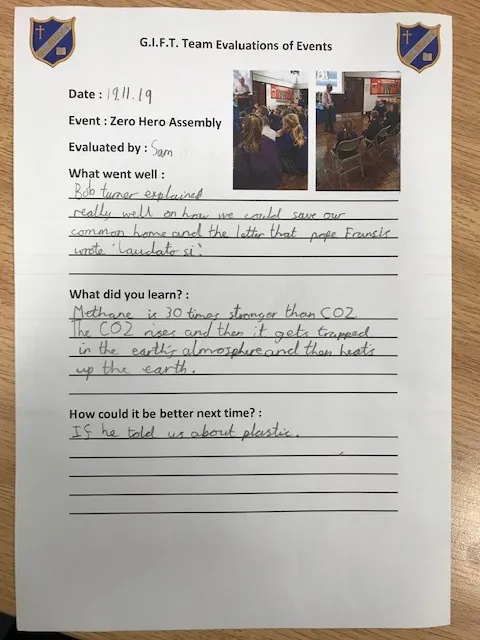 G.I.F.T. Team Evaluations of Events
Date : 19.11.19
Event : Zero Hero Assembly
Evaluated by : Sam
What went well :
Bob turner explained
really well on how we could save our
common home and the letter that pope Fransis
wrote 'Laudato si'
What did you learn? :
Methane is 30 times stronger than CO2
The CO2 rises and then it gets trapped
in the earth's atmosphere and then heats
up the earth.
How could it be better next time? :
If he told us about plastic.